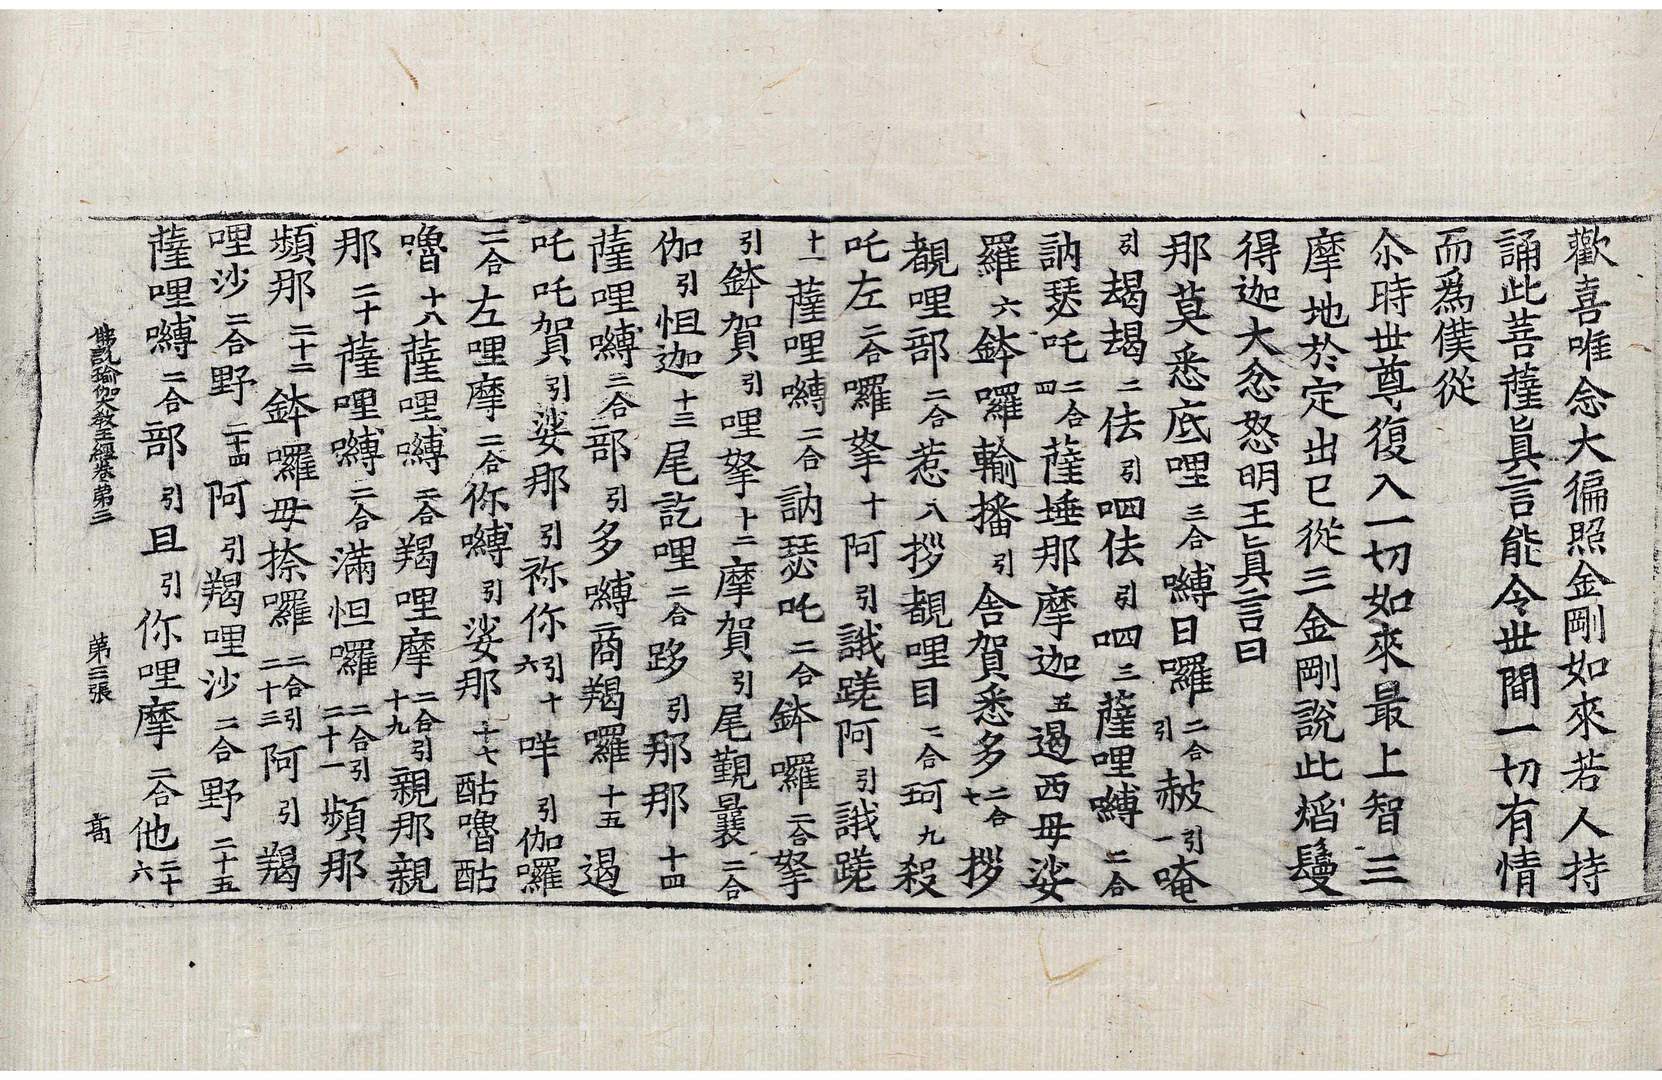 歡喜唯念大徧照金剛如來若人持
誦此菩薩眞言能令世間一切有情
而爲僕從
尒時世尊復入一切如來最上智三
摩地於定出已從三金剛說此熖鬘
得迦大忿怒明王眞言曰
那莫悉底哩三合嚩日囉二合引赦引一唵
引朅朅二佉引呬佉引呬三薩哩嚩二合
訥瑟吒二合四薩埵那摩迦五遏西毋娑
羅六鉢囉輸播引舍賀悉多二合七拶
覩哩部二合惹八拶覩哩目二合珂九殺
吒左二合囉拏十阿引誐蹉阿引誐蹉
十一薩哩嚩二合訥瑟吒二合鉢囉二合拏
引鉢賀引哩拏十二摩賀引尾覲曩二合
伽引怛迦十三尾訖哩二合跢引那那十四
薩哩嚩二合部引多嚩商羯囉十五遏
吒吒賀引娑那引祢你引十六咩引伽囉
二合左哩摩二合你嚩引娑那十七酤嚕酤
嚕十八薩哩嚩二合羯哩摩二合引十九親那親
那二十薩哩嚩二合滿怛囉二合引二十一頻那
頻那二十二鉢囉毋捺囉二合引二十三阿引羯
哩沙二合野二十四阿引羯哩沙二合野二十五
薩哩嚩二合部引且引你哩摩二合他二十六
佛說瑜伽大教王經卷第三 第三張 髙